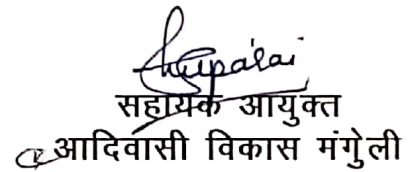 सहायक आयुक्त
आदिवासी विकास मंगुेली